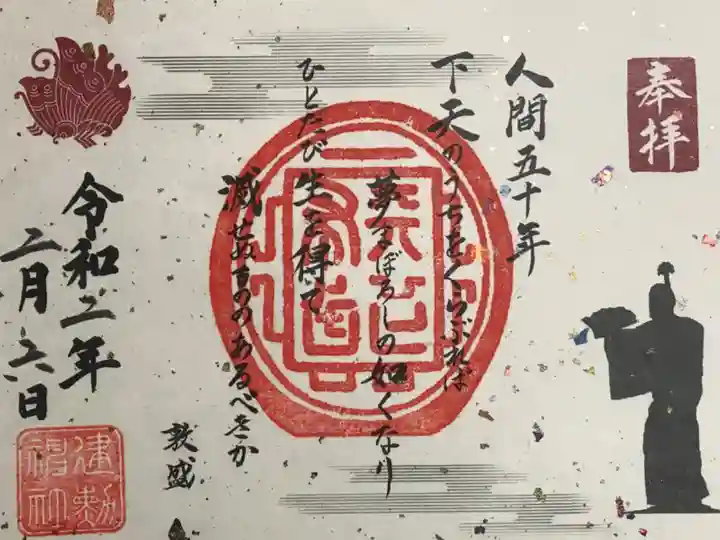 奉拝
人間五十年
下天のうちをくらぶれば
夢まぼろしの如くなり
ひとたび生を得て
滅せぬもののあるべきか
敦盛
天下布武
令和二年
二月六日
建勲神社